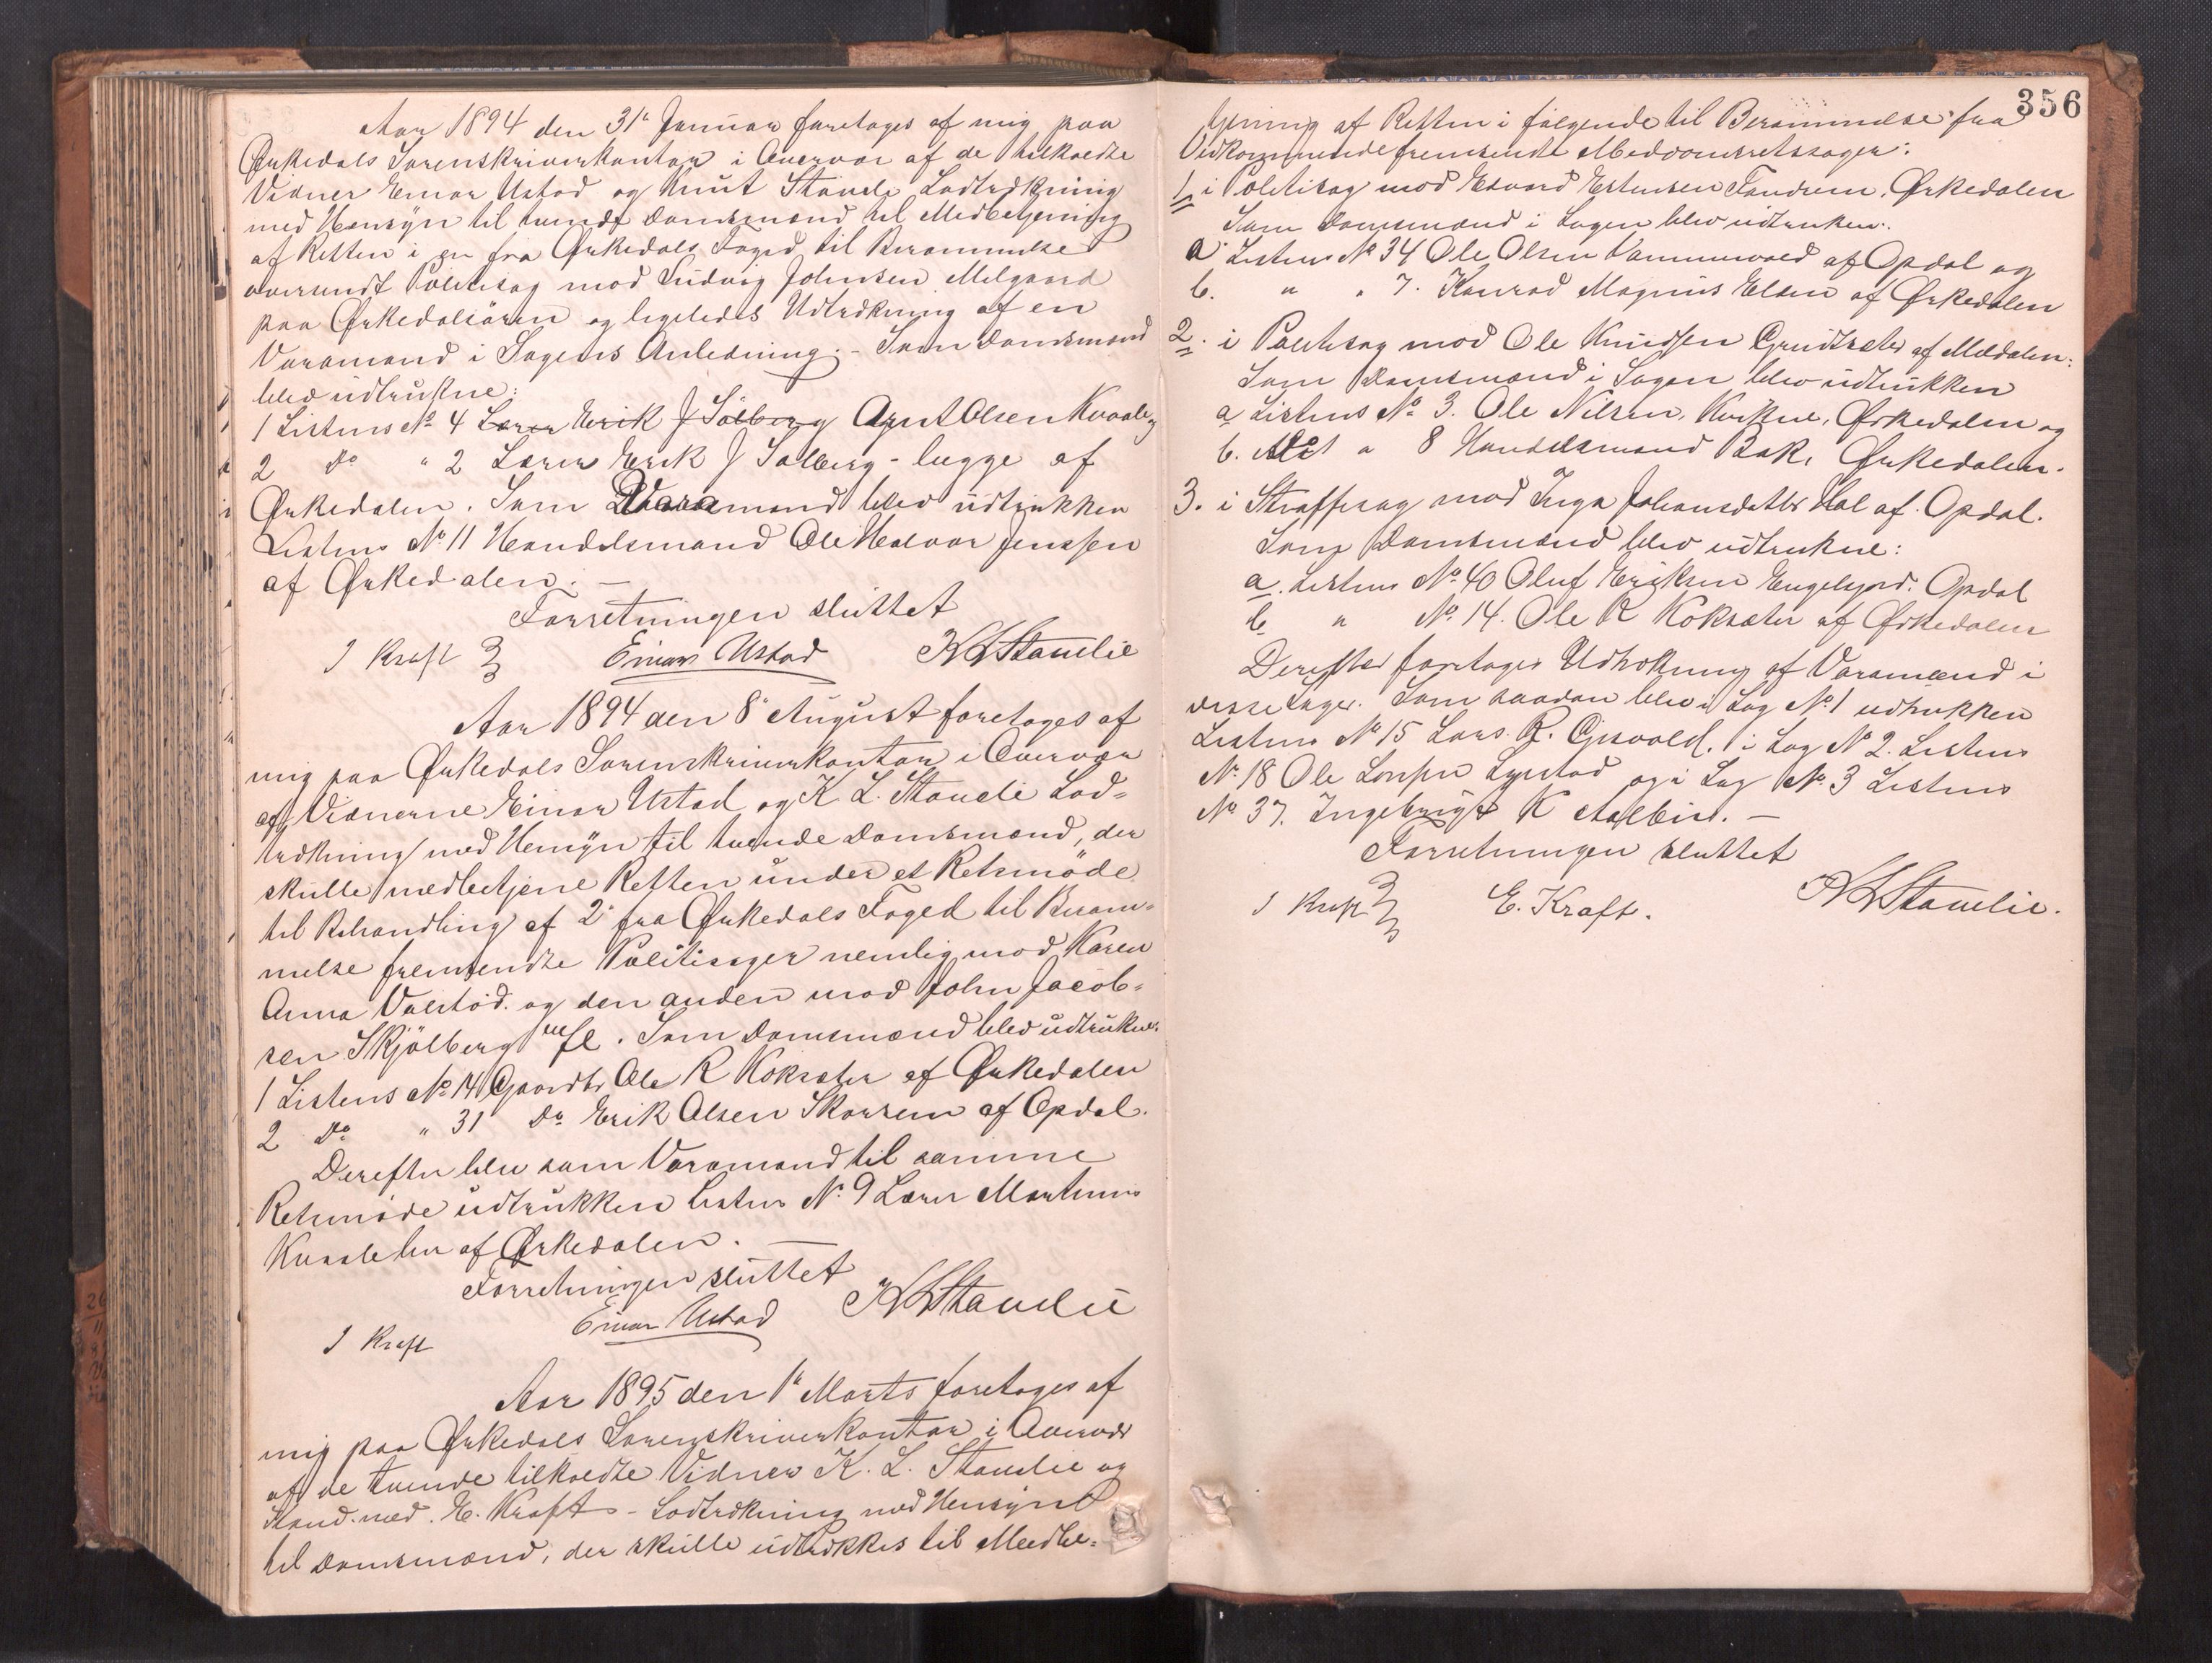 Aar 1894 den 31t Januar foretages af mig paa
Ørkedals Sorenskriverkontor i Overvær af de tilkaldte
Vidner Einar Ustad og Knut Staveli Lodtrækning
med Hensyn til tvende Domsmænd til Medbetjening
af Retten i en fra Ørkedals Foged til Berammelse
oversendt Politisag mod Ludvig Johnsen Melgaard
paa Ørkedalsøren og ligeledes Udtrækning af en
Varamand i Sagens Anledning. - Som Domsmænd
blev udtrukne:
1 Listens No 4 Lærer Erik J Solberg Arnt Olsen Kvaale og
2 Do " 2 Lærer Erik J Solberg - begge af
Ørkedalen. Som Varamand blev udtrukken
Listens No 11 Handelsmand Ole Halvor Jenssen
af Ørkedalen. -
Forretningen sluttet
J Kraft Einar Ustad K L Stavelie
Aar 1894 den 8de August foretages af
mig paa Ørkedals Sorenskriverkontor i Overvær
af Vidnerne Einar Ustad og K L. Staveli Lod-
trækning med Hensyn til tvende Domsmænd, der
skulle medbetjene Retten under et Retsmøde
til Behandling af 2de fra Ørkedals Foged til Beram-
melse fremsendte Politisager nemlig mod Karen
Anna Valstad og den anden mod John Jacob-
sen Skjølberg m fl. Som Domsmænd blev udtrukne:
1 Listens No 14 Gaardbr Ole R Koksæter af Ørkedalen
2 Do " 31 Do Erik Olsen Skorrem af Opdal.
Derefter blev som Varamand til samme
Retsmøde udtrukken Listens No 9 Lærer Martinus
af Ørkedalen. -
Forretningen sluttet
J Kraft Einar Ustad K L Stavelie
Aar 1895 den 1te Marts foretages af
mig paa Ørkedals Sorenskriverkontor i Overvær
af de tvende tilkaldte Vidner K. L. Stavelie og
Stud. med. E. Kraft - Lodtrækning med Hensyn
til Domsmænd, der skulle udtrækkes til Medbe-
356
tjening af Retten i følgende til Berammelse fra
Vedkommende fremsendte Meddomsretssager:
1. i Politisag mod Edvard Estensen Fandrem, Ørkedalen
Som Domsmænd i Sagen blev udtrukken:
a Listens No 34 Ole Olsen Vammervold af Opdal og
b. " " 7. Konrad Magnus Elsen af Ørkedalen
2. i Politisag mod Ole Knudsen Grudtsæter af Meldalen:
Som Domsmænd i Sagen blev udtrukken
a Listens No 3. Ole Nilsen, Kvikne, Ørkedalen og
b. " 8 Handelsmand Bak, Ørkedalen.
3. i Straffesag mod Inga Johansdatter Hol af Opdal.
Som Domsmænd blev udtrukne:
a. Listens No 40 Oluf Eriksen Engelsjord. Opdal
b " No 14. Ole R Koksæter af Ørkedalen
Derefter foretages Udtrækning af Varamænd i
disse Sager. Som saadan blev i Sag No 1 udtrukken
Listens No 15 Lars R. Gjsvold. i Sag No 2. Listens
No 18 Ole Larsen og i Sag No 3 Listens
No 37. Ingebrigt K Aalbu. -
Forretningen sluttet
J Kraft E. Kraft. K L Stavelie.